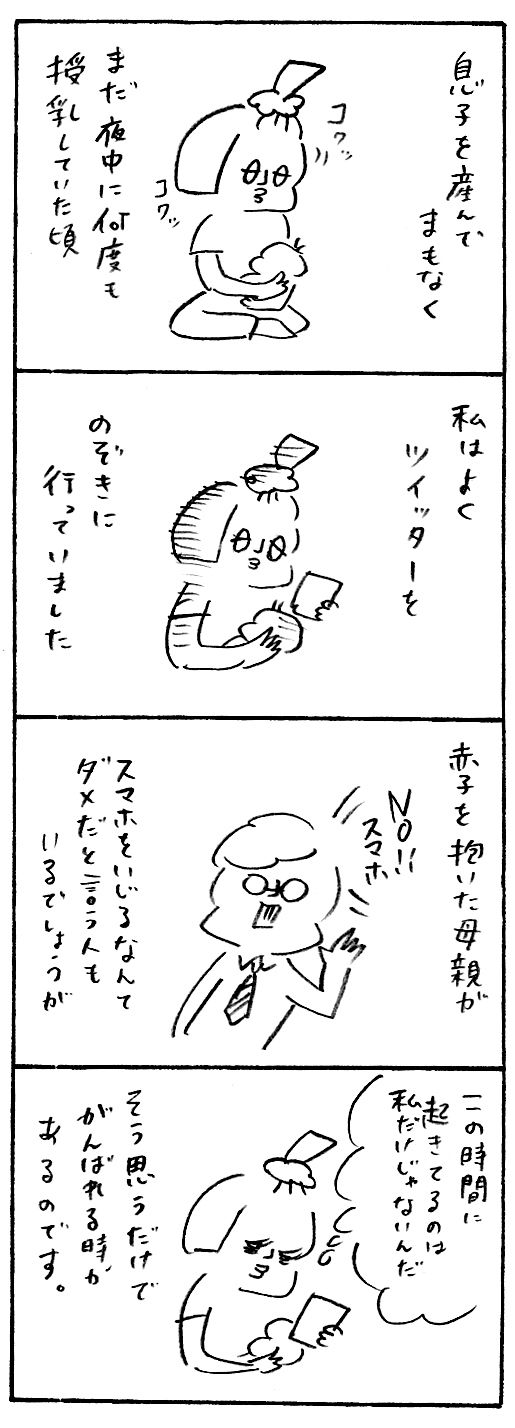 息子を産んで
まもなく
コクッ
コクッ
まだ夜中に何度も
授乳していた頃
私はよく
ツイッターを
のぞきに
行っていました
赤子を抱いた母親が
NO!!
スマホ
スマホをいじるなんて
ダメだと言う人も
いるでしょうが
この時間に
起きてるのは
私だけじゃないんだ
そう思うだけで
がんばれる時が
あるのです。